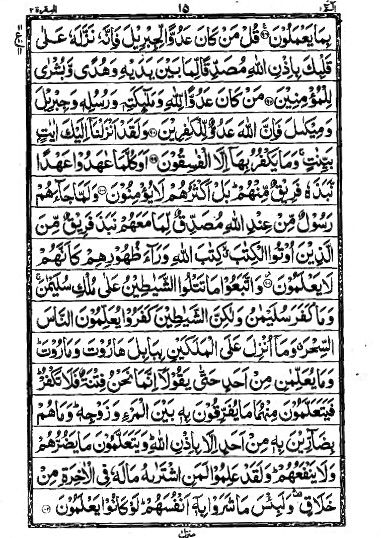 الٓمّٓ ١ ١٥ البقرة ٢
بِمَا يَعْمَلُوْنَ ۞ قُلْ مَنْ كَانَ عَدُوًّا لِّجِبْرِيْلَ فَاِنَّهٗ نَزَّلَهٗ عَلٰى
قَلْبِكَ بِاِذْنِ اللّٰهِ مُصَدِّقًا لِّمَا بَيْنَ يَدَيْهِ وَهُدًى وَّبُشْرٰى
لِلْمُؤْمِنِيْنَ ۞ مَنْ كَانَ عَدُوًّا لِّلّٰهِ وَمَلٰٓئِكَتِهٖ وَرُسُلِهٖ وَجِبْرِيْلَ
وَمِيْكٰىلَ فَاِنَّ اللّٰهَ عَدُوٌّ لِّلْكٰفِرِيْنَ ۞ وَلَقَدْ اَنْزَلْنَآ اِلَيْكَ اٰيٰتٍۭ
بَيِّنٰتٍ ۚ وَمَا يَكْفُرُ بِهَآ اِلَّا الْفٰسِقُوْنَ ۞ اَوَكُلَّمَا عٰهَدُوْا عَهْدًا
نَّبَذَهٗ فَرِيْقٌ مِّنْهُمْ ؕ بَلْ اَكْثَرُهُمْ لَا يُؤْمِنُوْنَ ۞ وَلَمَّا جَآءَهُمْ
رَسُوْلٌ مِّنْ عِنْدِ اللّٰهِ مُصَدِّقٌ لِّمَا مَعَهُمْ نَبَذَ فَرِيْقٌ مِّنَ
الَّذِيْنَ اُوْتُوا الْكِتٰبَ ۙ كِتٰبَ اللّٰهِ وَرَآءَ ظُهُوْرِهِمْ كَاَنَّهُمْ
لَا يَعْلَمُوْنَ ۞ وَاتَّبَعُوْا مَا تَتْلُوا الشَّيٰطِيْنُ عَلٰى مُلْكِ سُلَيْمٰنَ ۚ
وَمَا كَفَرَ سُلَيْمٰنُ وَلٰكِنَّ الشَّيٰطِيْنَ كَفَرُوْا يُعَلِّمُوْنَ النَّاسَ
السِّحْرَ ۗ وَمَآ اُنْزِلَ عَلَى الْمَلَكَيْنِ بِبَابِلَ هَارُوْتَ وَمَارُوْتَ ؕ
وَمَا يُعَلِّمٰنِ مِنْ اَحَدٍ حَتّٰى يَقُوْلَآ اِنَّمَا نَحْنُ فِتْنَةٌ فَلَا تَكْفُرْ ؕ
فَيَتَعَلَّمُوْنَ مِنْهُمَا مَا يُفَرِّقُوْنَ بِهٖ بَيْنَ الْمَرْءِ وَزَوْجِهٖ ؕ وَمَا هُمْ
بِضَآرِّيْنَ بِهٖ مِنْ اَحَدٍ اِلَّا بِاِذْنِ اللّٰهِ ؕ وَيَتَعَلَّمُوْنَ مَا يَضُرُّهُمْ
وَلَا يَنْفَعُهُمْ ؕ وَلَقَدْ عَلِمُوْا لَمَنِ اشْتَرٰىهُ مَا لَهٗ فِى الْاٰخِرَةِ مِنْ
خَلَاقٍ ؕ وَلَبِئْسَ مَا شَرَوْا بِهٖٓ اَنْفُسَهُمْ ؕ لَوْ كَانُوْا يَعْلَمُوْنَ ۞